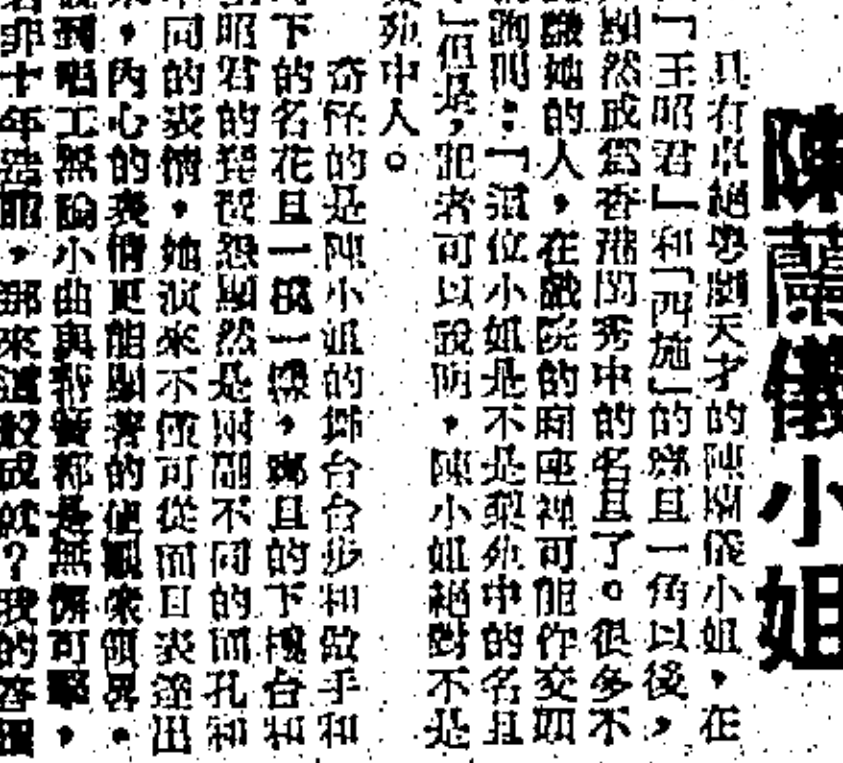 陳蘭儀小姐
具有卓絕粵劇天才的陳蘭儀小姐，在
「王昭君」和「西施」的旦一角以後，
顯然成爲香港閨秀中的名旦了。很多不
識她的人，在戲院的廂座裡可能作交頭
詢問：「這位小姐是不是梨苑中的名旦
」但是，記者可以說明，陳小姐絕對不是
苑中人。
奇怪的是陳小姐的舞台台步和做手和
下的名花旦一模一樣，旦的下台和
昭君的琵琶怨顯然是兩個不同的面孔和
同的表情，她演來不僅可從面目表達出
，內心的表情更能顯著的使觀衆領畧。
到唱工無論小曲與都是無懈可擊，
非十年造詣，那來這般成就？我的答覆